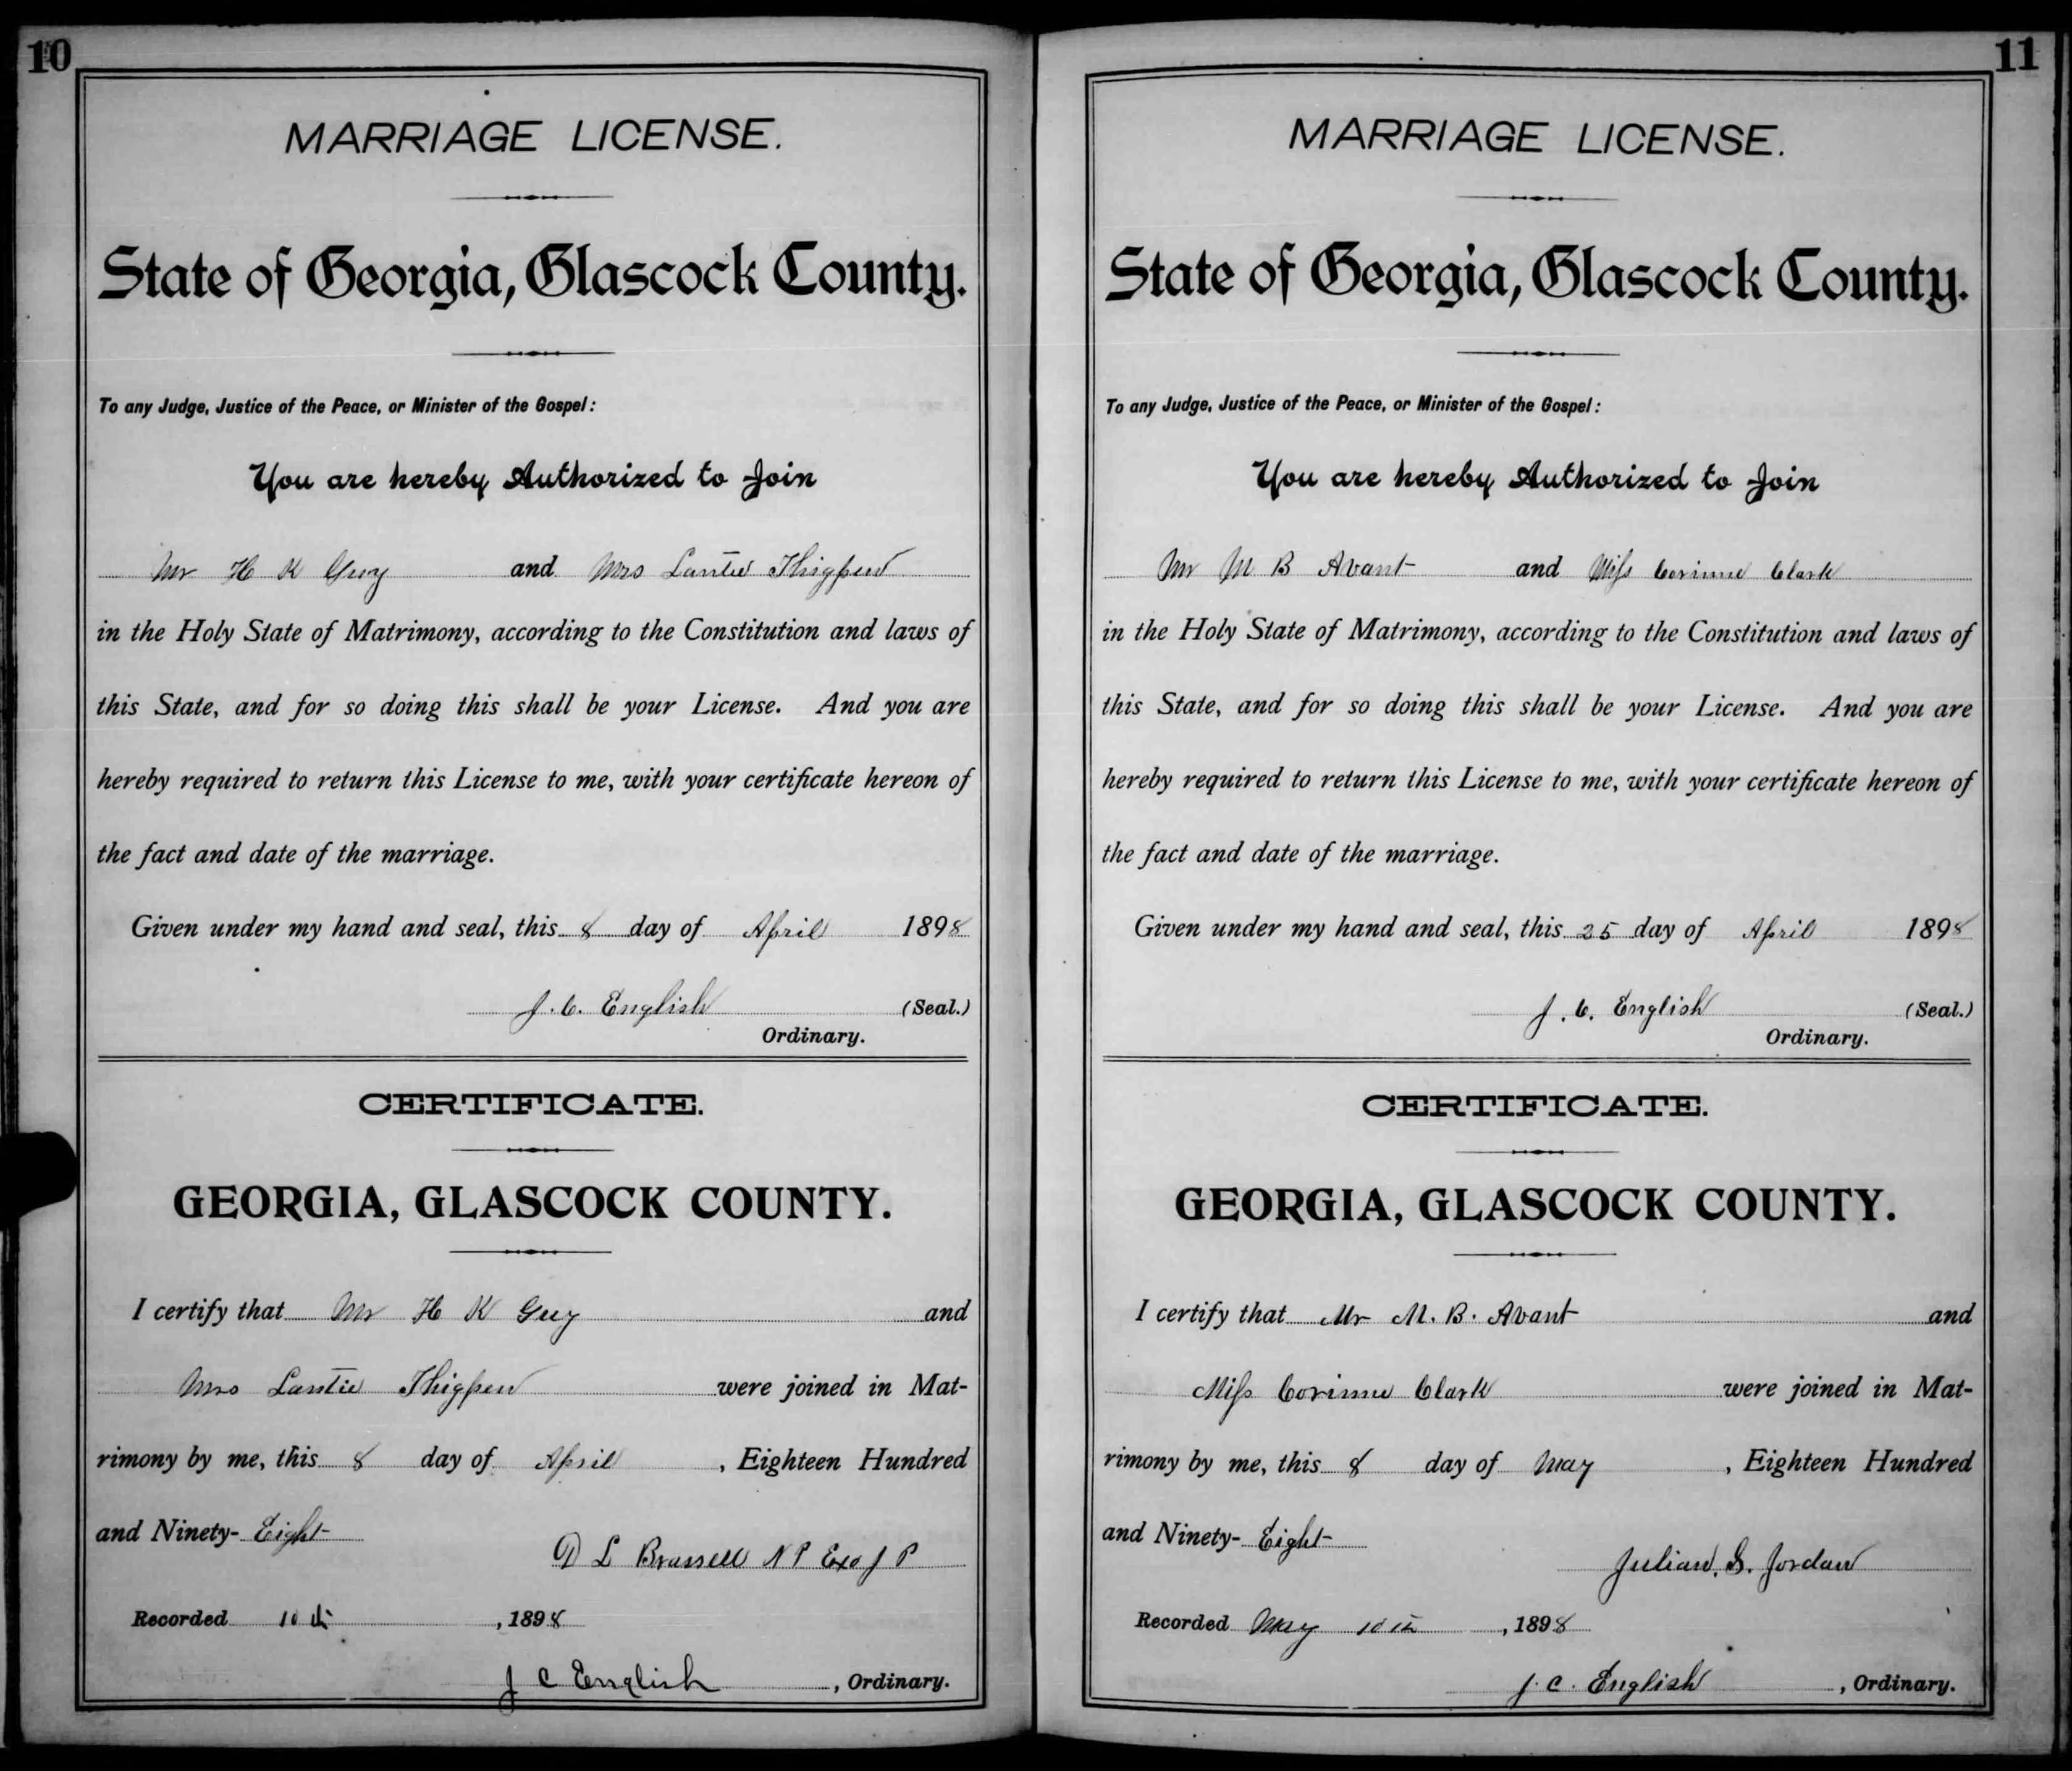 10
MARRIAGE LICENSE.
State of Georgia, Glascock County.
To any Judge, Justice of the Peace, or Minister of the Gospel:
You are hereby Authorized to Join
Mr H K Guy and Mrs Lantie Thigpen
in the Holy State of Matrimony, according to the Constitution and laws of
this State, and for so doing this shall be your License. And you are
hereby required to return this License to me, with your certificate hereon of
the fact and date of the marriage.
Given under my hand and seal, this 8 day of April 1898
J. C. English (Seal.)
Ordinary.
CERTIFICATE.
GEORGIA, GLASCOCK COUNTY.
I certify that Mr H K Guy and
Mrs Lantie Thigpen were joined in Mat-
rimony by me, this 8 day of April, Eighteen Hundred
and Ninety-Eight
D L Brassell N P Exo J P
Recorded 10th, 1898
J C English, Ordinary.
11
MARRIAGE LICENSE.
State of Georgia, Glascock County.
To any Judge, Justice of the Peace, or Minister of the Gospel:
You are hereby Authorized to Join
Mr M B Avant and Miss Corinne Clark
in the Holy State of Matrimony, according to the Constitution and laws of
this State, and for so doing this shall be your License. And you are
hereby required to return this License to me, with your certificate hereon of
the fact and date of the marriage.
Given under my hand and seal, this 25 day of April 1898
J. C. English (Seal.)
Ordinary.
CERTIFICATE.
GEORGIA, GLASCOCK COUNTY.
I certify that Mr M. B. Avant and
Miss Corinne Clark were joined in Mat-
rimony by me, this 8 day of May, Eighteen Hundred
and Ninety-Eight
Julian. S. Jordan
Recorded May 10th, 1898
J. C. English, Ordinary.